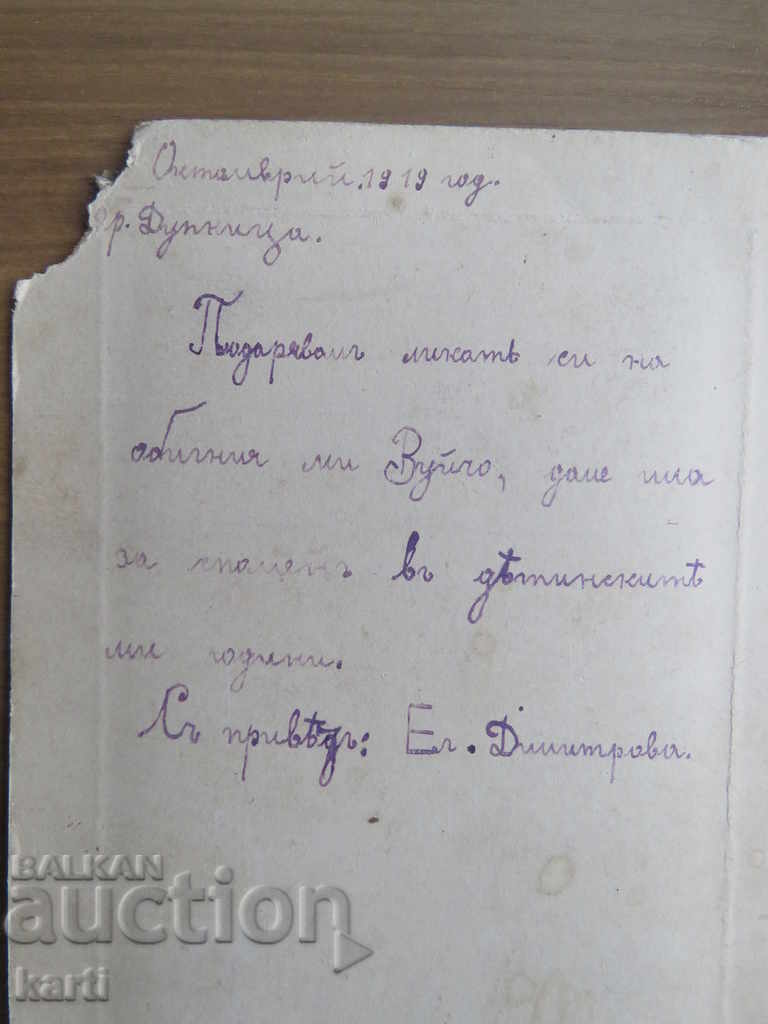 Октомврий.1919 год.
гр. Дупница.
Подарявамъ ликатѣ си на
обичния ми Вуйчо, даме има
за споменъ въ дѣтинскитѣ
ми години.
Съ привѣдъ: Ел. Димитрова.
BALKAN
auction
karti